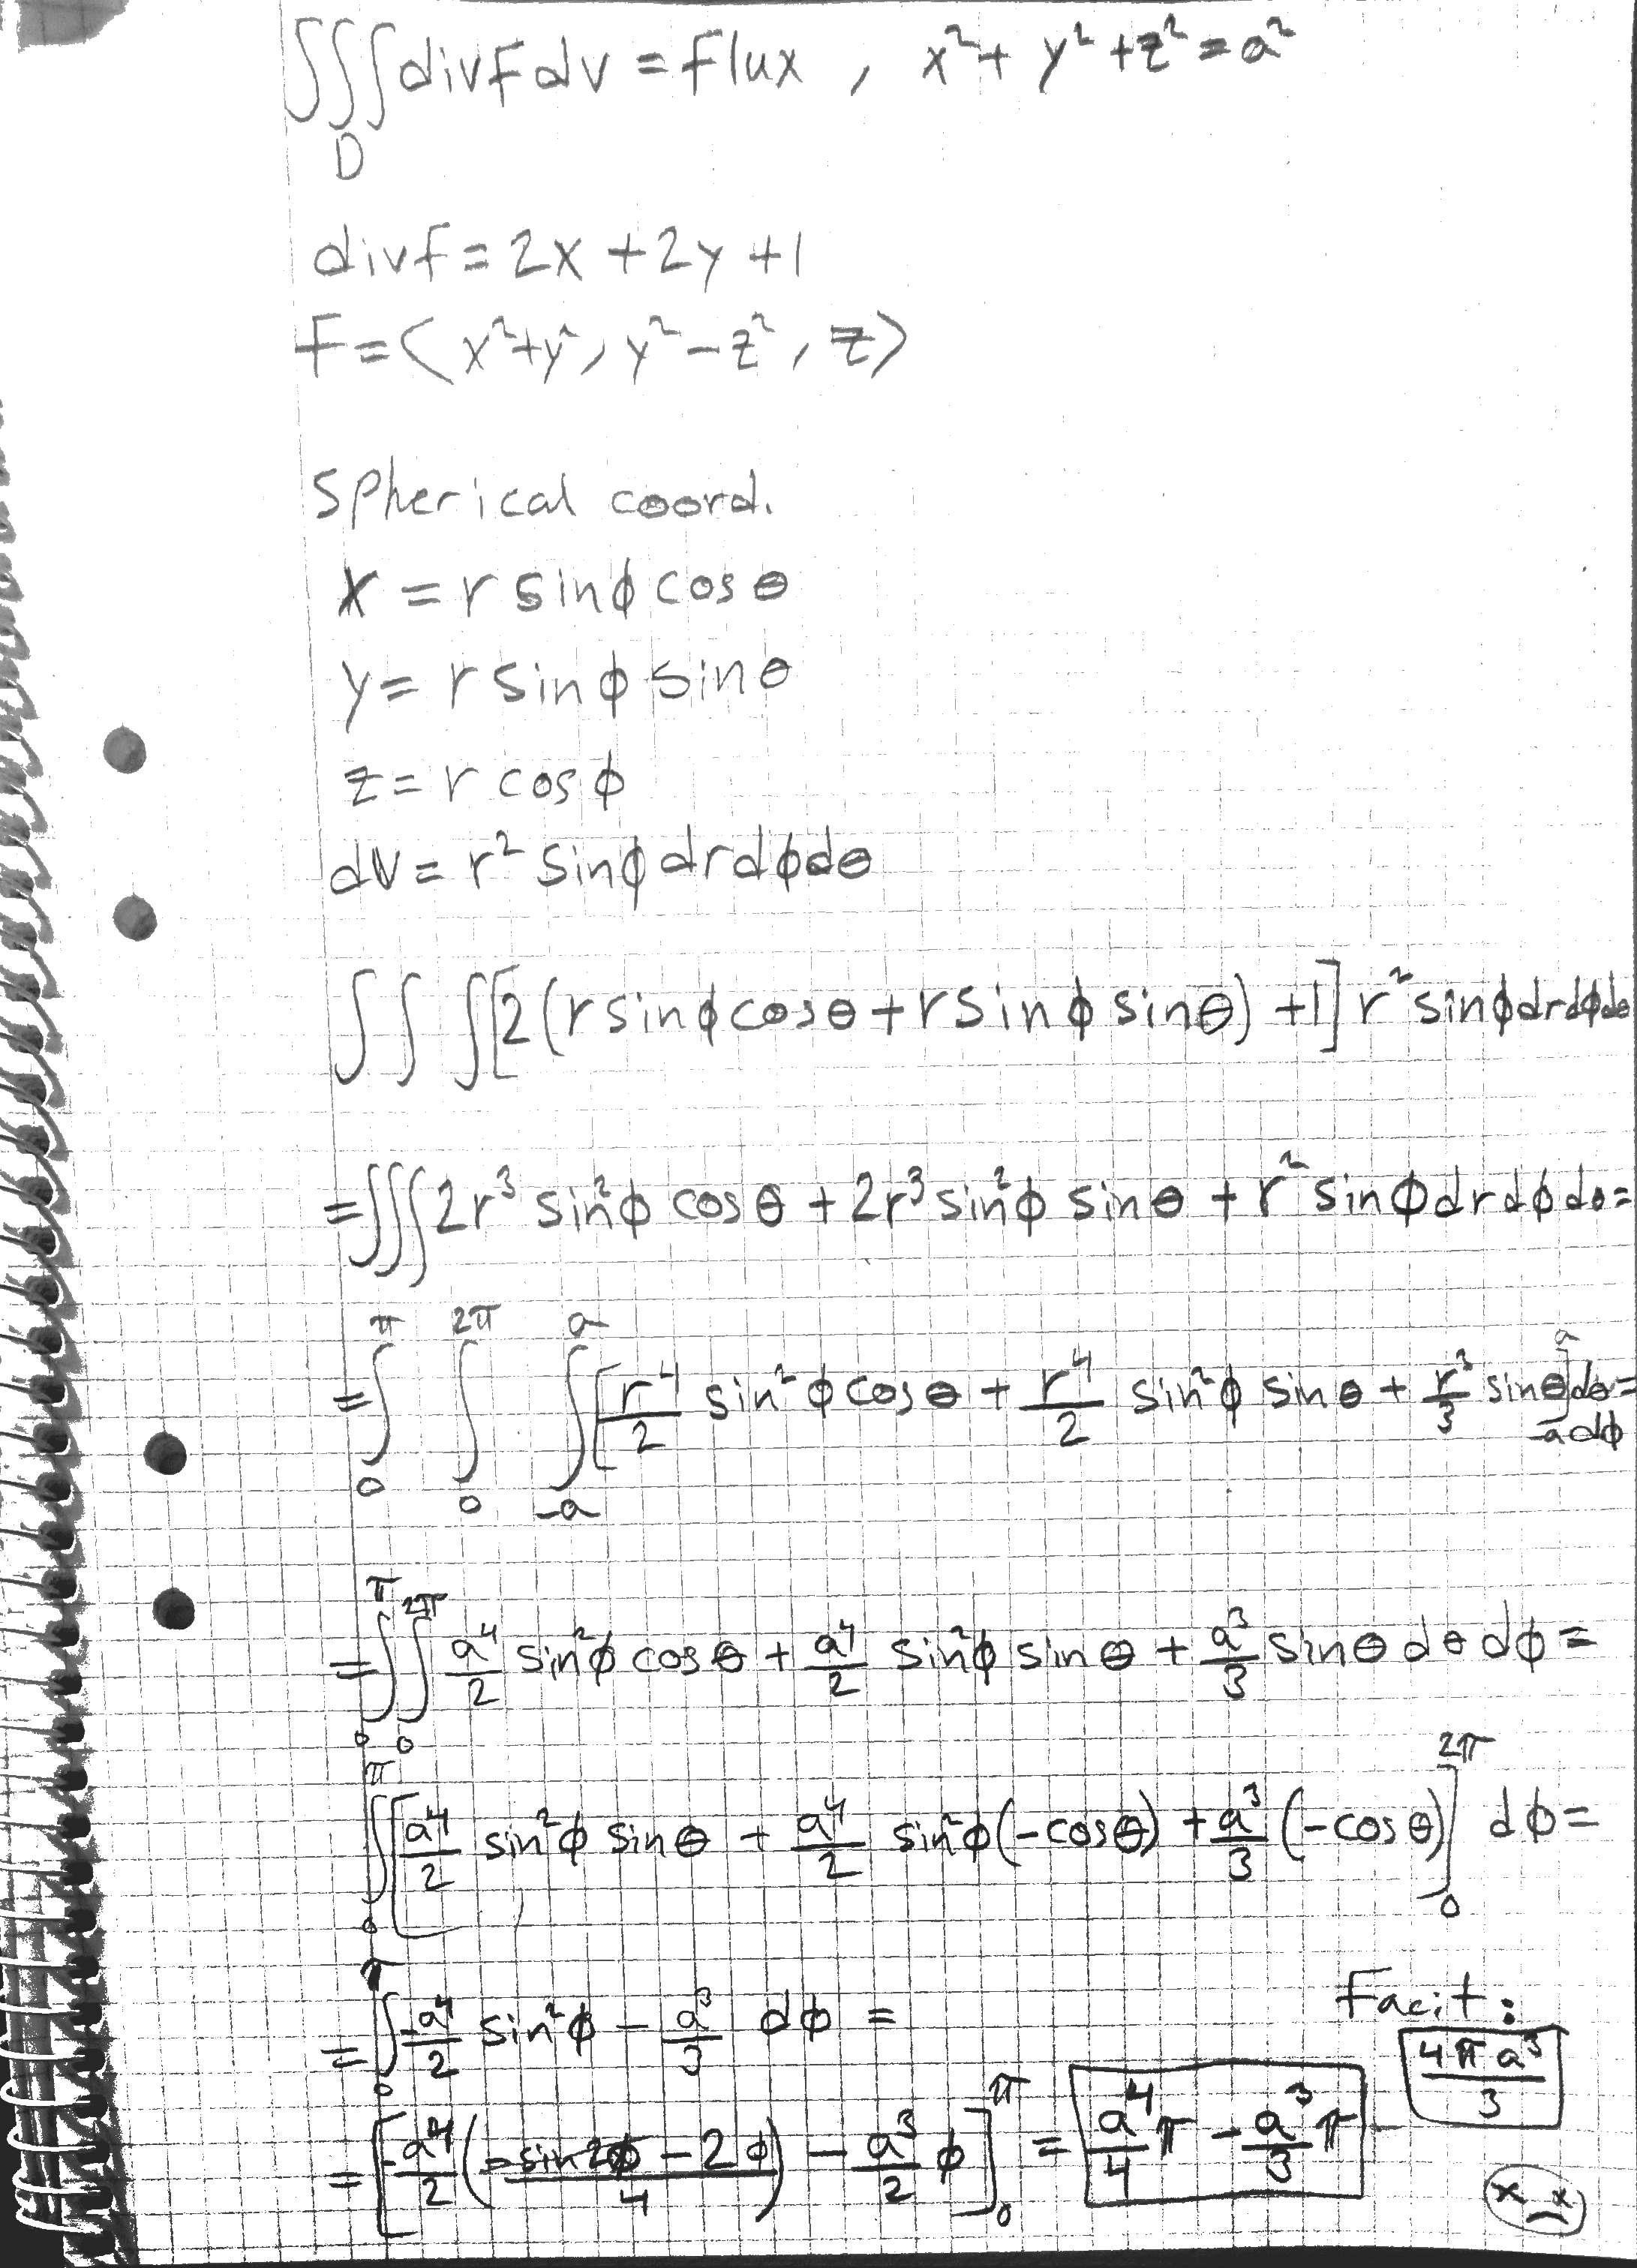 ∭_D divFdv = Flux , x²+ y² +z² = a²
divf = 2x +2y +1
F = (x²+y², y²−z², z)
Spherical coord.
x = r sinϕ cosθ
y = r sinϕ sinθ
z = r cosϕ
dV = r² sinϕ drdϕdθ
∫ ∫ ∫[2(r sinϕ cosθ + r sinϕ sinθ) +1] r² sinϕ drdϕdθ
= ∭ 2r³ sin²ϕ cosθ + 2r³ sin²ϕ sinθ + r² sinϕ drdϕdθ =
= ∫_0^π ∫_0^{2π} ∫_{-a}^a [r⁴/2 sin²ϕ cosθ + r⁴/2 sin²ϕ sinθ + r³/3 sinθ]_{-a}^a dθ dϕ =
= ∫_0^π ∫_0^{2π} a⁴/2 sin²ϕ cosθ + a⁴/2 sin²ϕ sinθ + a³/3 sinθ dθ dϕ =
∫_0^π [a⁴/2 sin²ϕ sinθ + a⁴/2 sin²ϕ (−cosθ) + a³/3 (−cosθ)]_0^{2π} dϕ =
= ∫_0^π −a⁴/2 sin²ϕ − a³/3 dϕ =
Facit:
4πa³/3
= [−a⁴/2 (−sin2ϕ − 2ϕ)/4 − a³/2 ϕ]_0^π = a⁴/4 π − a³/3 π
x_x